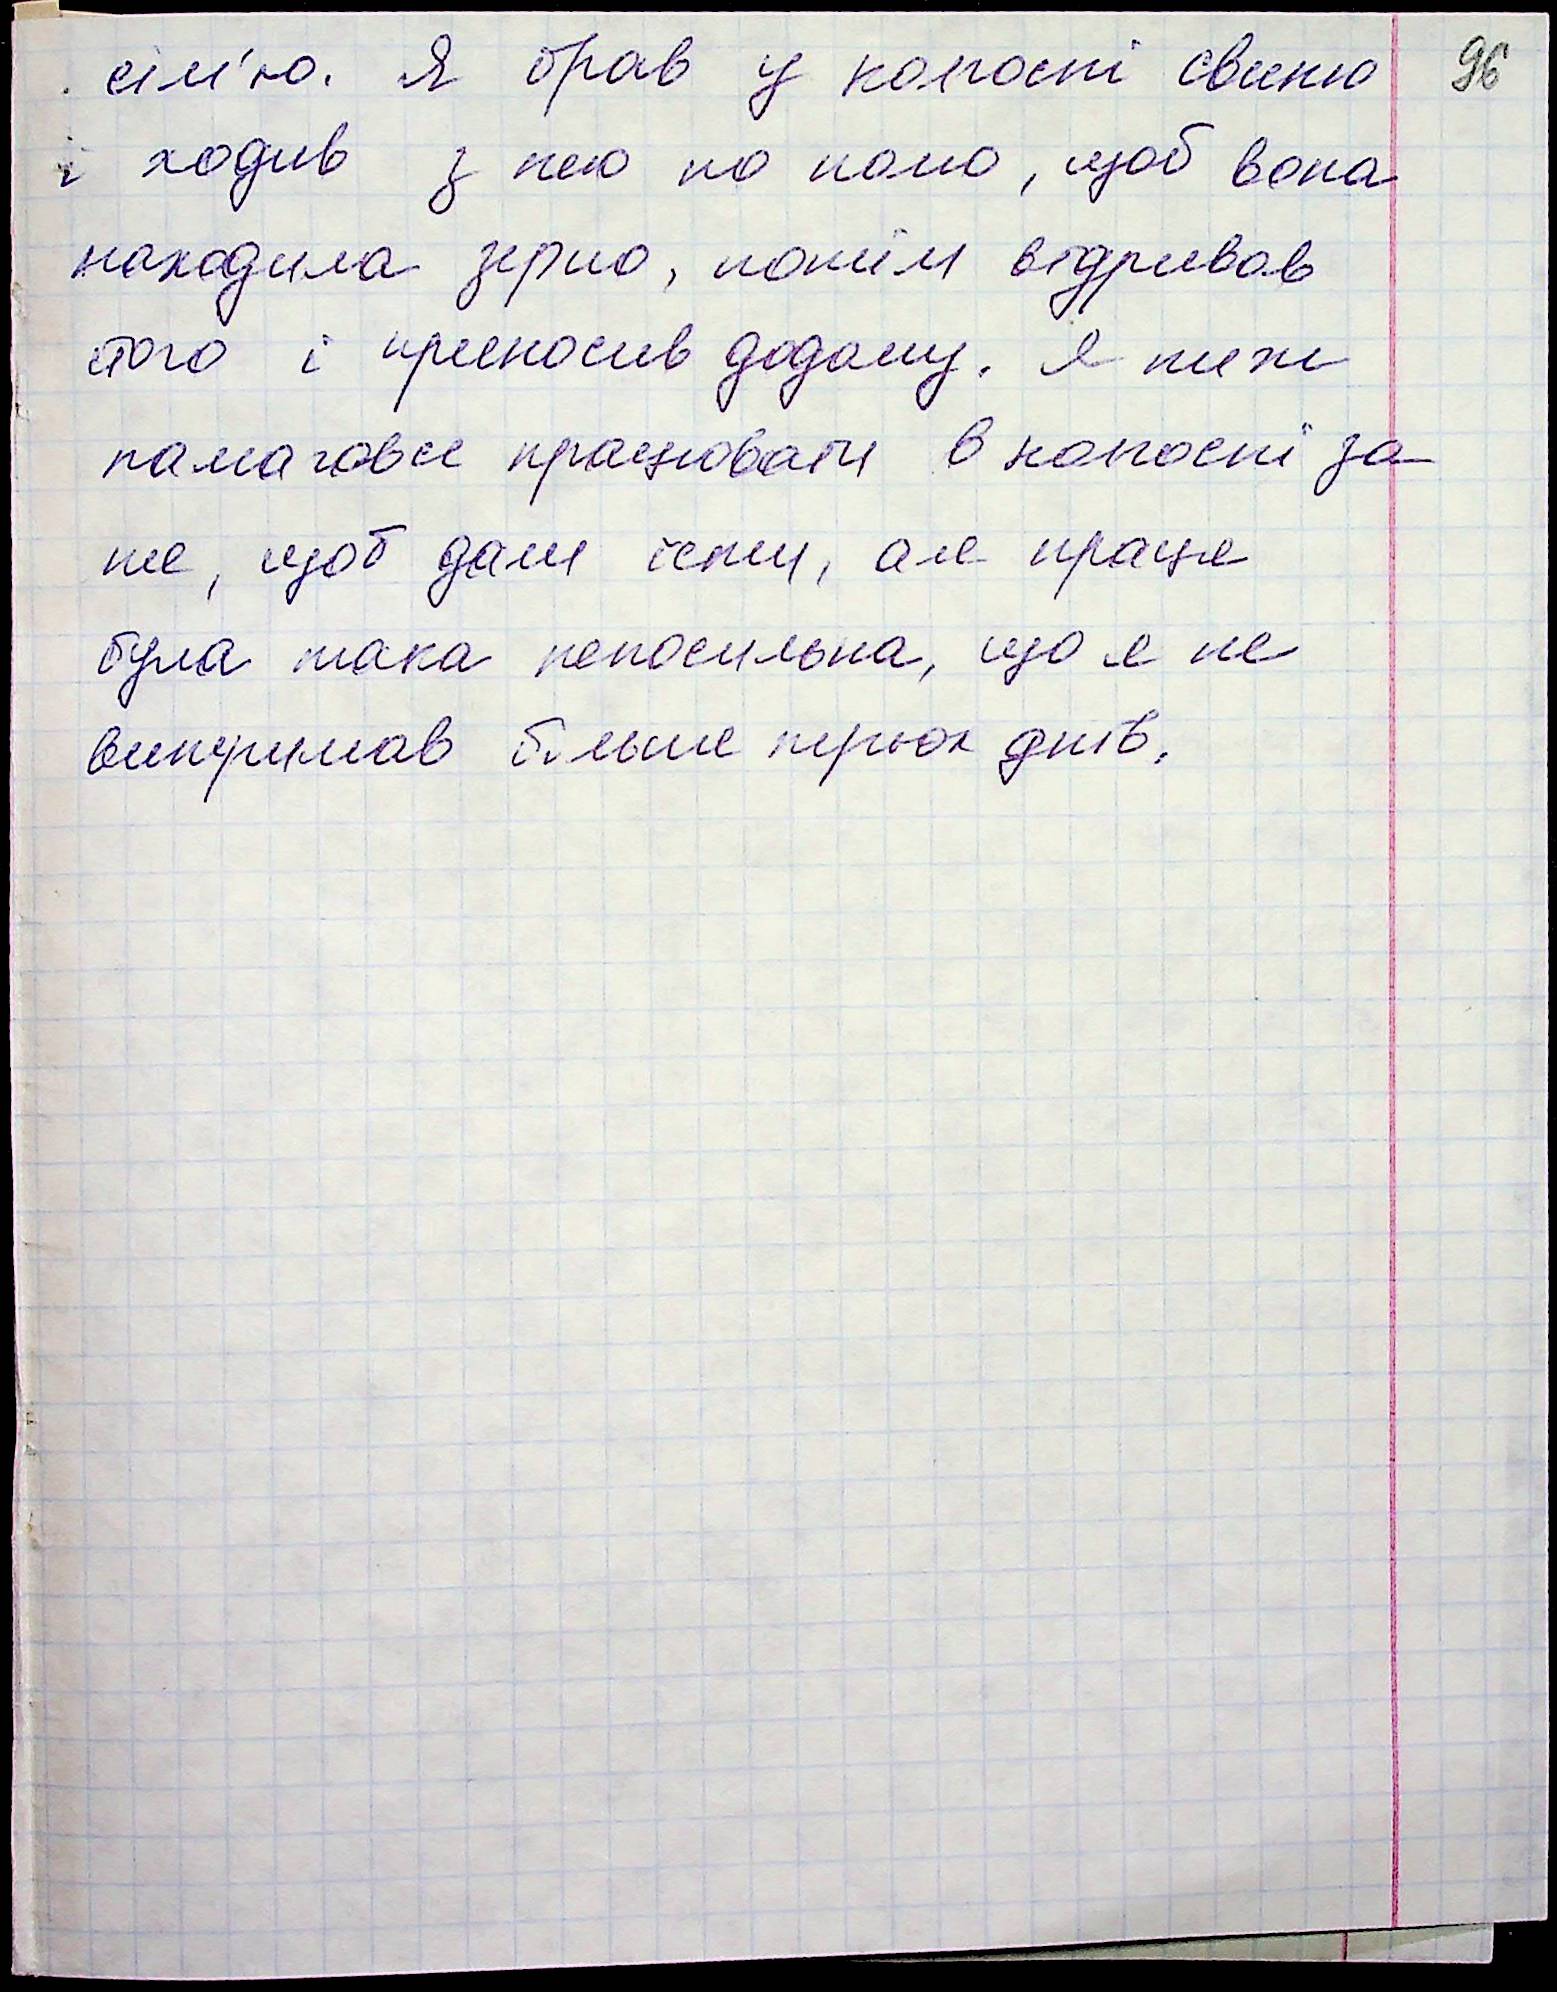 сім'ю. Я брав у колгоспі свиню 96
і ходив з нею по полю, щоб вона
находила зерно, потім відривав
його і приносив додому. Я теж
намагався працювати в колгоспі за
те, щоб дали їсти, але праця
була така непосильна, що я не
витримав більше трьох днів.